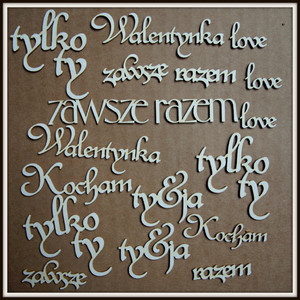 tylko ty
Walentynka love
zawsze razem love
zawsze razem love
Walentynka
tylko ty
Kocham
ty&ja
tylko ty
Kocham
ty&ja
zawsze
razem